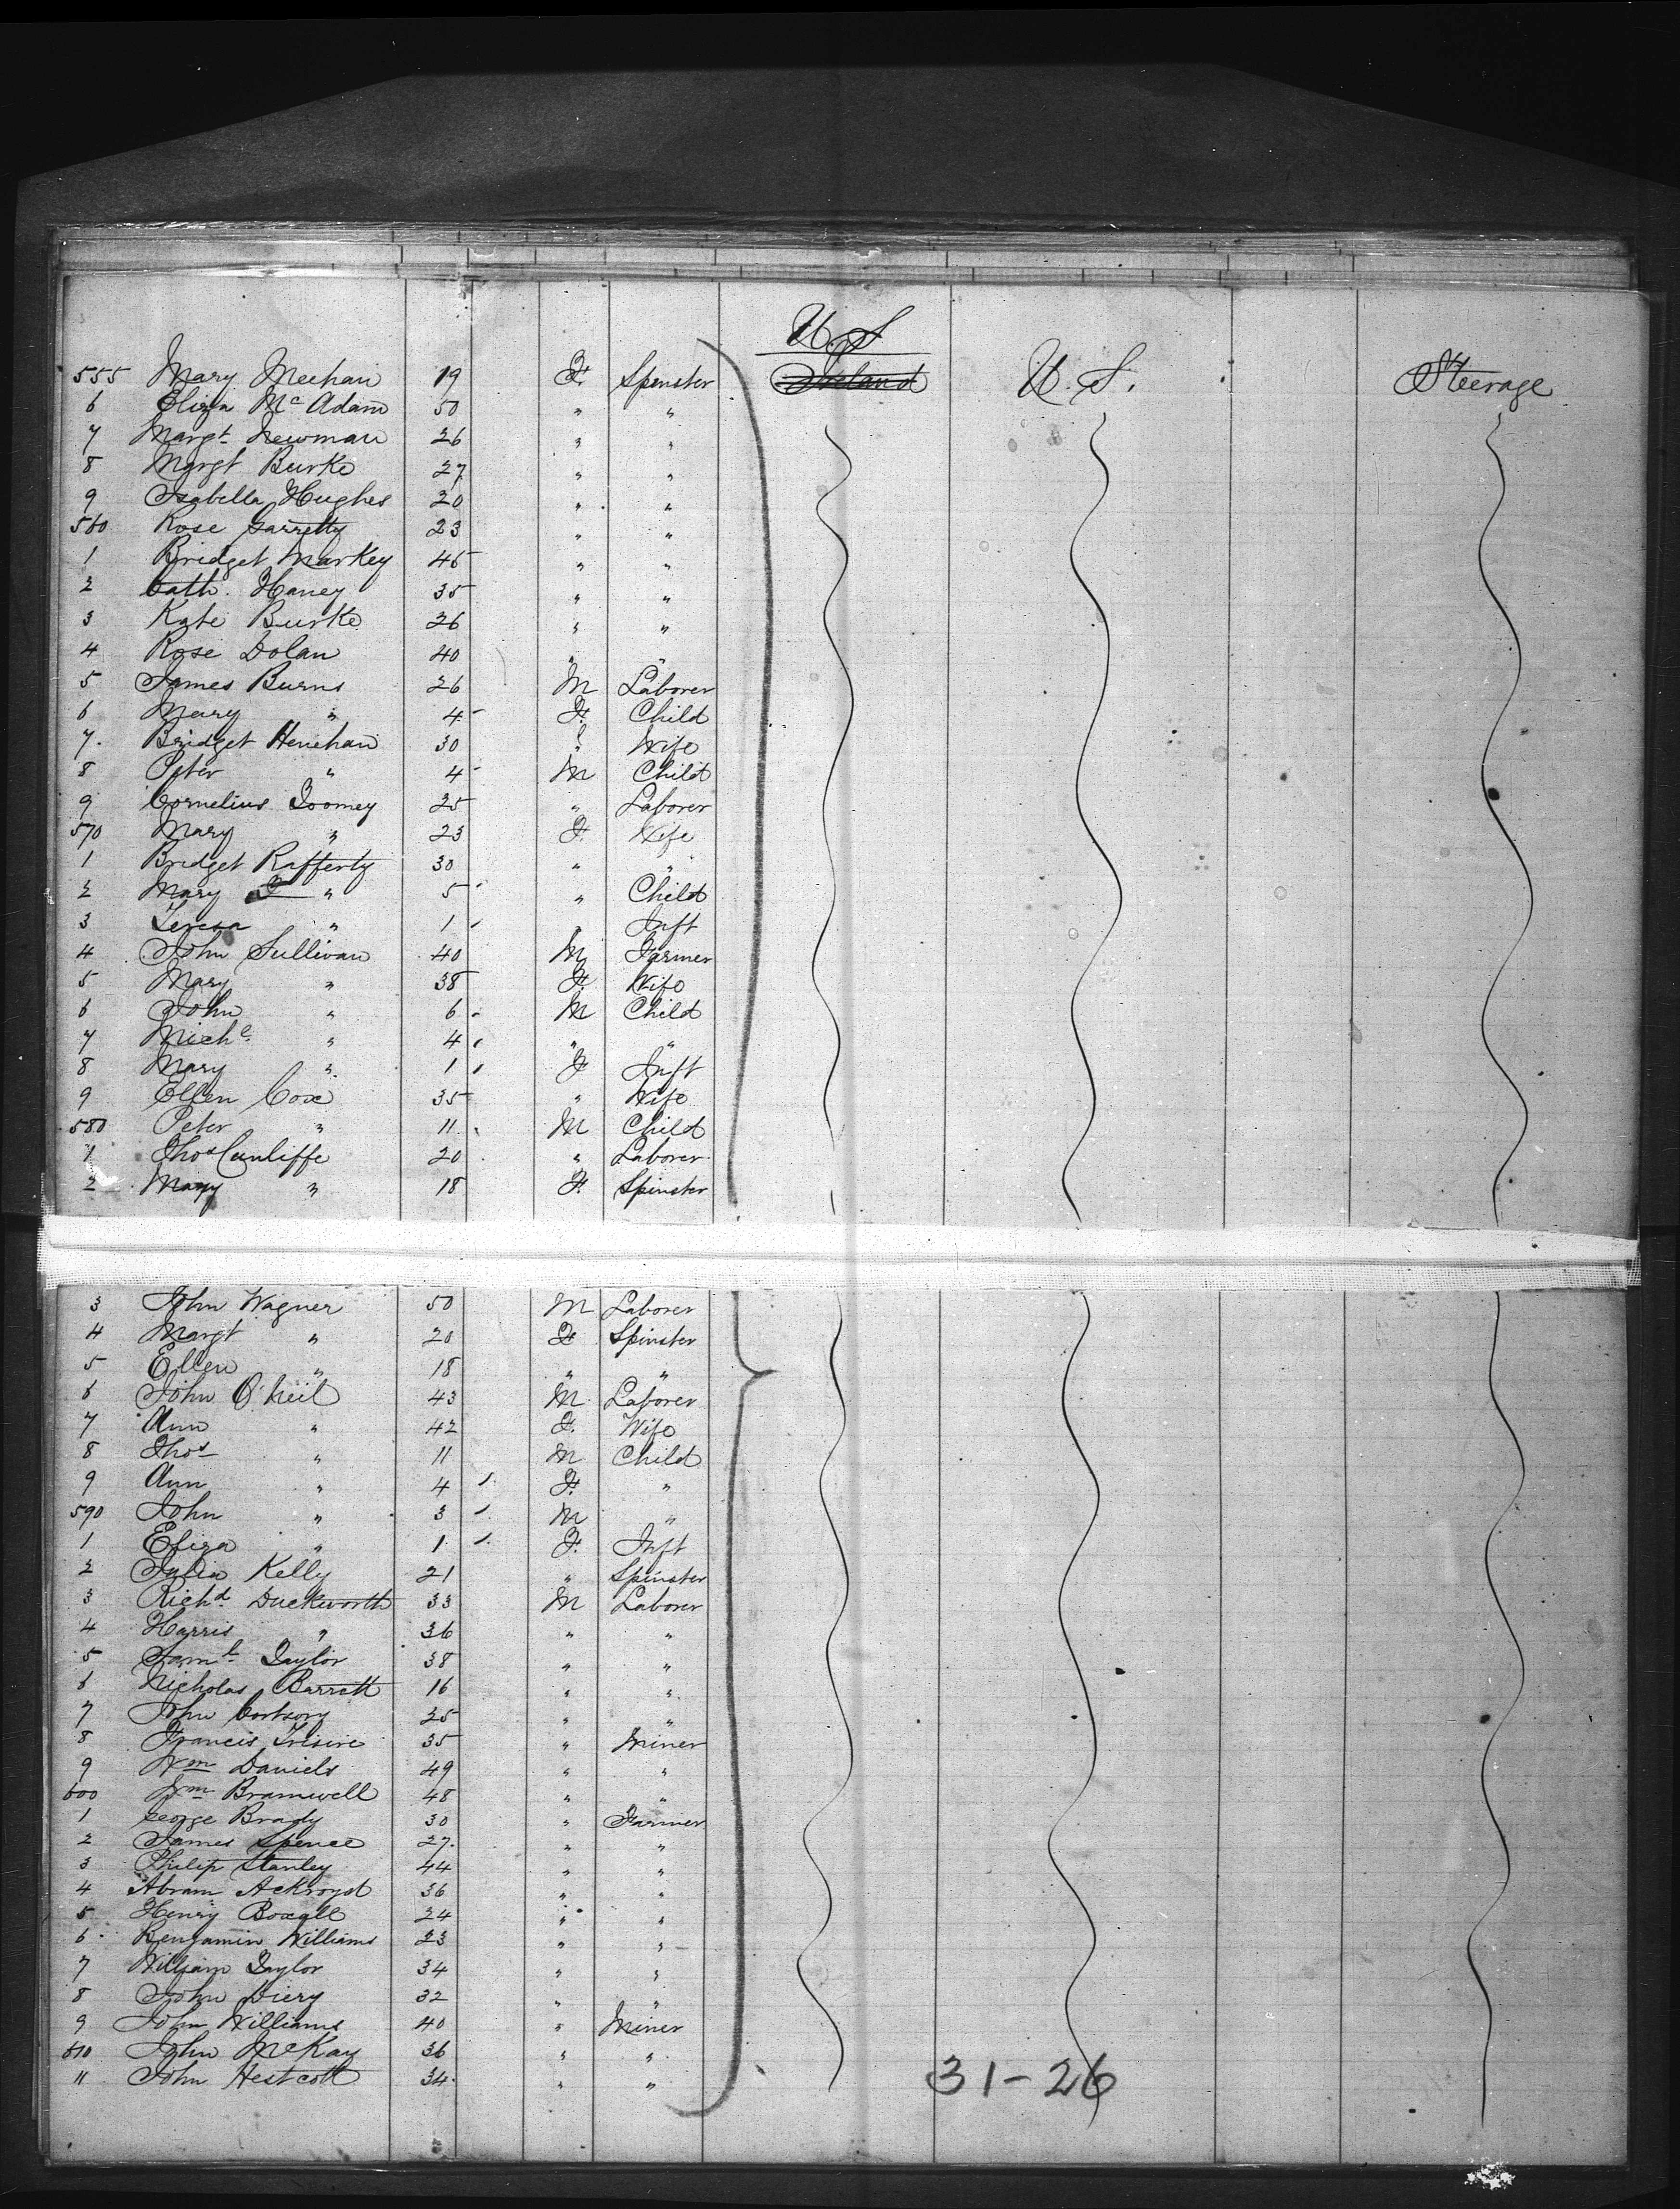 U.S
555 Mary Meehan 19 F. Spinster Ireland U.S. Steerage
6 Eliza McAdam 50 " "
7 Margt Newman 26 " "
8 Margt Burke 27 " "
9 Isabella Hughes 20 " "
560 Rose Garretty 23 " "
1 Bridget Markey 45 " "
2 Cath. Haney 35 " "
3 Kate Burke 26 " "
4 Rose Dolan 40 " "
5 James Burns 26 M Laborer
6 Mary " 4 F. Child
7. Bridget Henehan 30 " Wife
8 Peter " 4 M Child
9 Cornelius Toomey 25 " Laborer
570 Mary " 23 F. Wife
1 Bridget Rafferty 30 " "
2 Mary " 5 " Child
3 Teresa " 1 " Inft
4 John Sullivan 40 M Farmer
5 Mary " 38 F. Wife
6 John " 6 M Child
7 Michl " 4 " "
8 Mary " 1 F Inft
9 Ellen Cox 35 " Wife
580 Peter " 11 M Child
1 Thos Cunliffe 20 " Laborer
2 Mary " 18 F. Spinster
3 John Wagner 50 M Laborer
4 Margt " 20 F Spinster
5 Ellen " 18 " "
6 John O'Neil 43 M Laborer
7 Ann " 42 F. Wife
8 Thos " 11 M Child
9 Ann " 4 F. "
590 John " 3 M "
1 Eliza " 1 F. Inft
2 Julia Kelly 21 " Spinster
3 Richd Duckworth 33 M Laborer
4 Harris " 36 " "
5 Saml Taylor 38 " "
6 Nicholas Barrett 16 " "
7 John 25 " "
8 Francis 35 " Miner
9 Wm Daniels 49 " "
600 Wm Bramwell 48 " "
1 George Brady 30 " Farmer
2 James Spence 27. " "
3 Philip Stanley 44 " "
4 Abram Ackroyd 36 " "
5 Henry Boxall 24 " "
6 Benjamin Williams 23 " "
7 William Taylor 34 " "
8 John Diery 32 " "
9 John Williams 40 " Miner
610 John McKay 36 " "
11 John Hestcott 34 " "
31-26